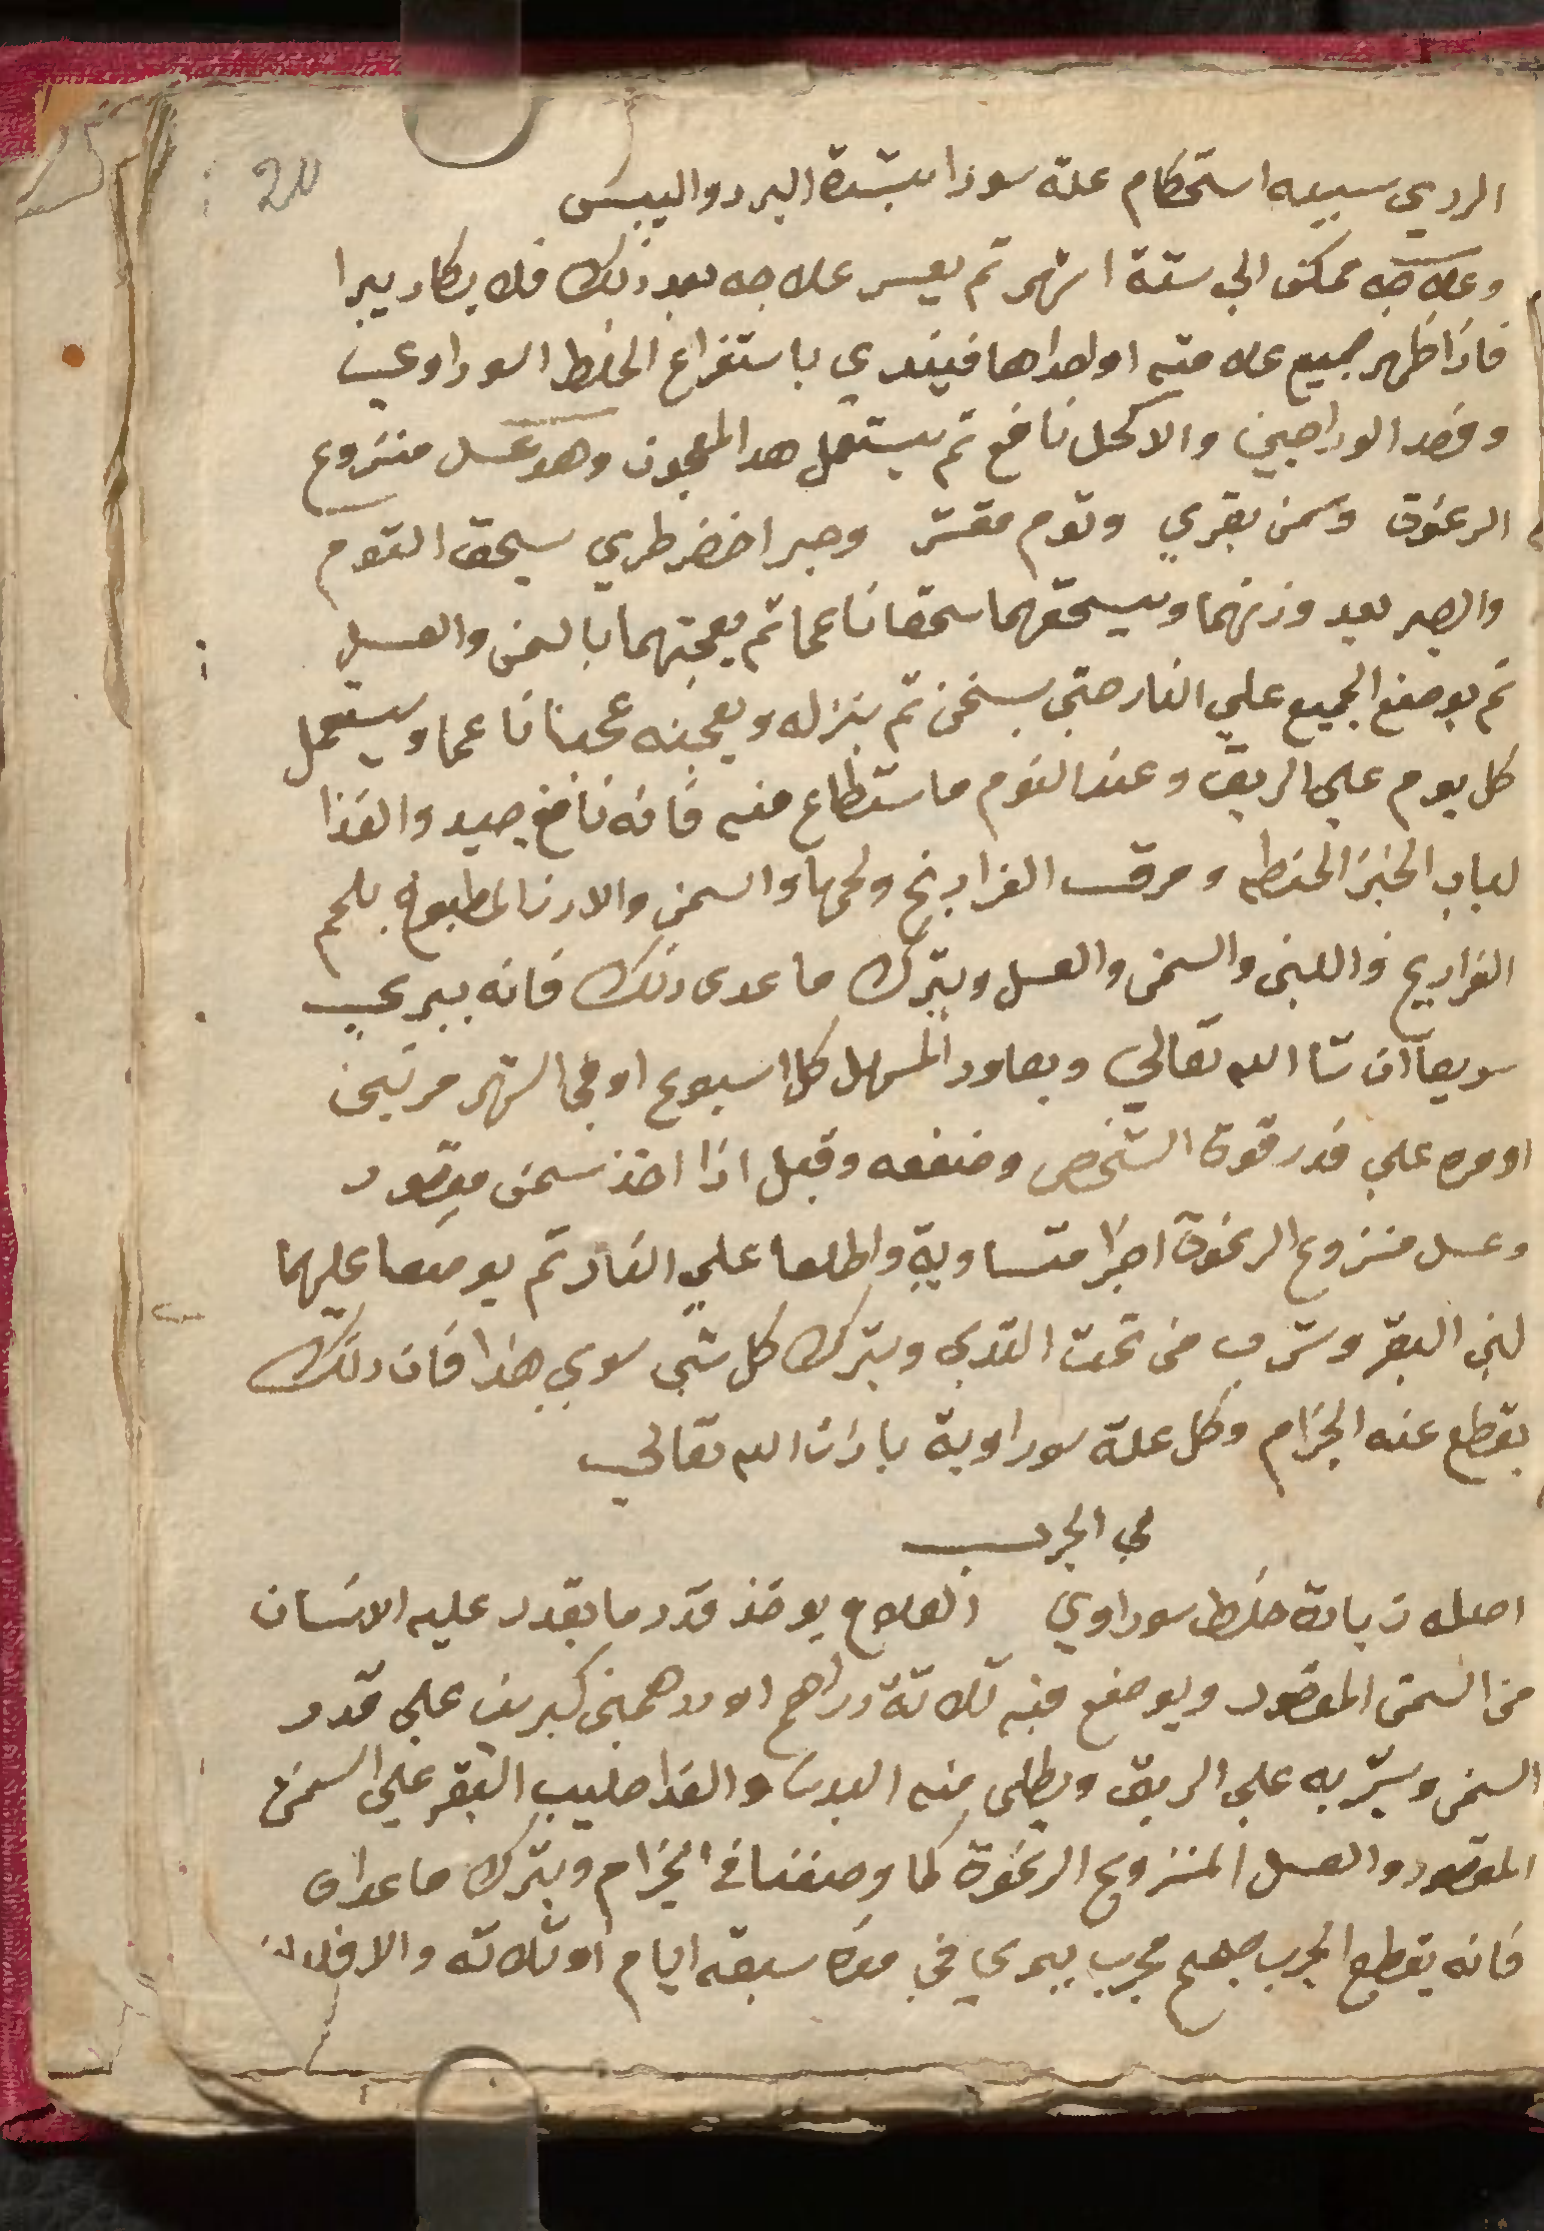 20
الردي سببه استحكام علة سودا بشدة البرد واليبس
وعلاجه ممكن الي ستة اشهر ثم يعسر علاجه بعد ذلك فلا يكاد يبرا
فاذا ظهر جميع علامته او احداها فيبتدي باستفراغ الخلط السوداوي
وفصد الوداجين والاكحل نافع ثم يستعمل هدا المعجون وهو عسل منزوع
الرغوة وسمن بقري وتوم مقشر وصبر اخضر طري يسحق التوم
والصبر بعد وزنهما ويسحقهما سحقا ناعما ثم يعجنهما بالسمن والعسل
ثم يوضع الجميع علي النار حتي يسخن ثم ينزله ويعجنه عجنا ناعما ويستعمل
كل يوم علي الريق وعند النوم ما استطاع منه فانه نافع جيد والغذا
لباب الخبز الحنطه ومرق الفراريج ولحمها والسمن والارز المطبوخ بلحم
الفراريج واللبن والسمن والعسل ويترك ما عدى ذلك فانه يبري
سريعا ان شا الله تعالي ويعاود المسهل كل اسبوع او في الشهر مرتين
او مره علي قدر قوة الشخص وضعفه وقيل اذا اخذ سمن مقصود
وعسل منزوع الرغوة اجزا متساوية واطلعا علي النار ثم يوضعا عليهما
لبن البقر وشرب من تحت الثدي ويترك كل شي سوي هذا فان ذلك
يقطع عنه الجزام وكل علة سوداوية باذن الله تعالي
في الجرب
اصله زيادة خلط سوداوي العلاج يوخذ قدر ما يقدر عليه الانسان
من السمن المقصود ويوضع فيه ثلاثة دراهم او درهمين كبريت علي قدر
السمن ويشربه علي الريق ويطلي منه البدن والغذا حليب البقر علي السمن
المقصود والعسل المنزوع الرغوة كما وصفنا في الجزام ويترك ما عداه
فانه يقطع الجرب صحيح مجرب يبري في مدة سبعة ايام او ثلاثه والا فلا